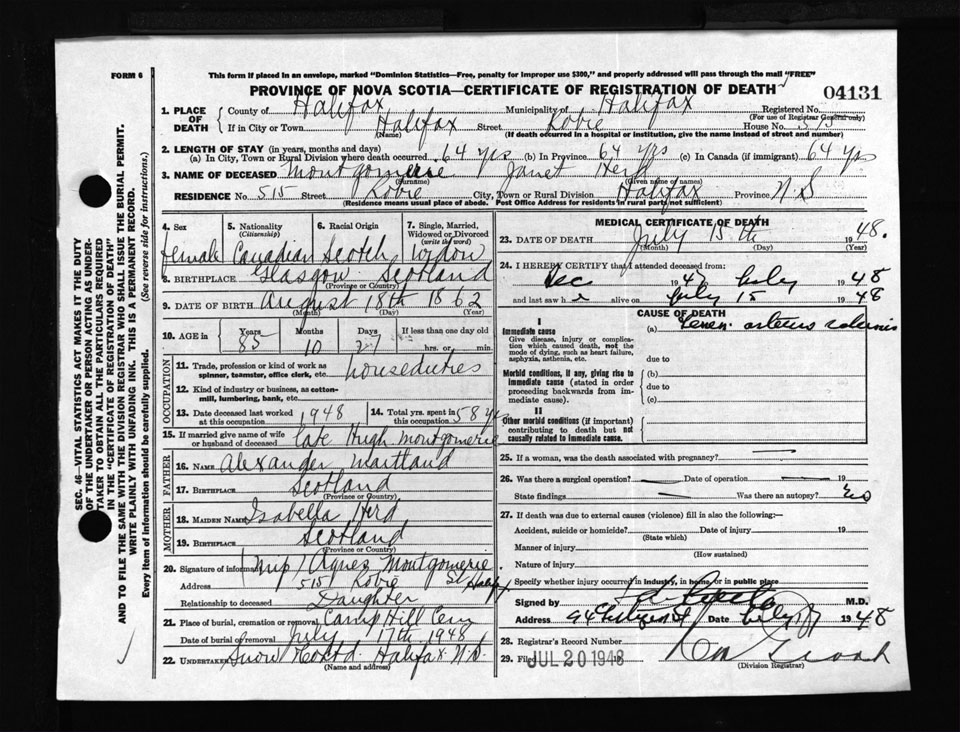 FORM 6
This form if placed in an envelope, marked "Dominion Statistics—Free, penalty for improper use $300," and properly addressed will pass through the mail "FREE"
PROVINCE OF NOVA SCOTIA—CERTIFICATE OF REGISTRATION OF DEATH
04131
1. PLACE OF DEATH
County of Halifax Municipality of Halifax Registered No.
(For use of Registrar General only)
If in City or Town Halifax Street Robie House No. 515
(Name) (If death occurred in a hospital or institution, give the name instead of street and number)
2. LENGTH OF STAY (in years, months and days)
(a) In City, Town or Rural Division where death occurred 64 yrs (b) In Province 64 yrs (c) In Canada (if immigrant) 64 yrs.
3. NAME OF DECEASED Montgomerie Janet Herd
(Surname) (Given name or names)
RESIDENCE No. 515 Street Robie City, Town or Rural Division Halifax Province N.S
(Residence means usual place of abode. Post Office Address for residents in rural parts not sufficient)
4. Sex
5. Nationality (Citizenship)
6. Racial Origin
7. Single, Married, Widowed or Divorced (write the word)
female Canadian Scotch Widow
8. BIRTHPLACE Glasgow Scotland
(Province or Country)
9. DATE OF BIRTH August 18th 1862
(Month) (Day) (Year)
10. AGE in Years Months Days If less than one day old
85 10 27 hrs. or min.
OCCUPATION
11. Trade, profession or kind of work as spinner, teamster, office clerk, etc. houseduties
12. Kind of industry or business, as cotton-mill, lumbering, bank, etc.
13. Date deceased last worked at this occupation 1948
14. Total yrs. spent in this occupation 58 yrs
15. If married give name of wife or husband of deceased late Hugh Montgomerie
FATHER
16. NAME Alexander Maitland
17. BIRTHPLACE Scotland
(Province or Country)
MOTHER
18. MAIDEN NAME Isabella Herd
19. BIRTHPLACE Scotland
(Province or Country)
20. Signature of informant Agnes Montgomerie
Address 515 Robie St Halifax
Relationship to deceased Daughter
21. Place of burial, cremation or removal Camp Hill Cem
Date of burial or removal July 17th 1948
22. UNDERTAKER Snow Halifax N.S.
(Name and address)
MEDICAL CERTIFICATE OF DEATH
23. DATE OF DEATH July 15th 1948.
(Month) (Day) (Year)
24. I HEREBY CERTIFY that I attended deceased from:
Dec 1947 July 1948
and last saw h e alive on July 15 1948
CAUSE OF DEATH
I
Immediate cause
Give disease, injury or complication which caused death, not the mode of dying, such as heart failure, asphyxia, asthenia, etc.
(a)
due to
Morbid conditions, if any, giving rise to immediate cause (stated in order proceeding backwards from immediate cause).
(b)
due to
(c)
II
Other morbid conditions (if important) contributing to death but not causally related to immediate cause.
25. If a woman, was the death associated with pregnancy? —
26. Was there a surgical operation? — Date of operation — 19
State findings — Was there an autopsy?
27. If death was due to external causes (violence) fill in also the following:—
Accident, suicide or homicide? Date of injury 19
(State which)
Manner of injury
(How sustained)
Nature of injury
Specify whether injury occurred in industry, in home, or in public place
Signed by M.D.
Address Date 1948
28. Registrar's Record Number
29. Filed JUL 20 1948
(Division Registrar)
SEC. 46—VITAL STATISTICS ACT MAKES IT THE DUTY
OF THE UNDERTAKER OR PERSON ACTING AS UNDER-
TAKER TO OBTAIN ALL THE PARTICULARS REQUIRED
IN THE "CERTIFICATE OF REGISTRATION OF DEATH"
AND TO FILE THE SAME WITH THE DIVISION REGISTRAR WHO SHALL ISSUE THE BURIAL PERMIT.
WRITE PLAINLY WITH UNFADING INK. THIS IS A PERMANENT RECORD.
Every item of information should be carefully supplied. (See reverse side for instructions.)